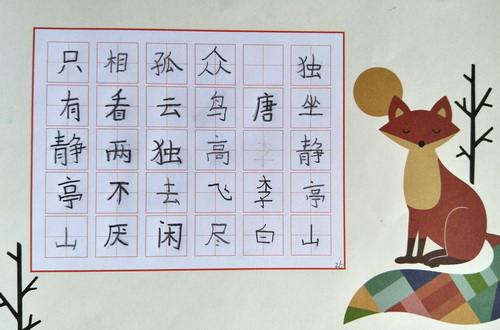 独坐静亭山
唐李白
众鸟高飞尽
孤云独去闲
相看两不厌
只有静亭山